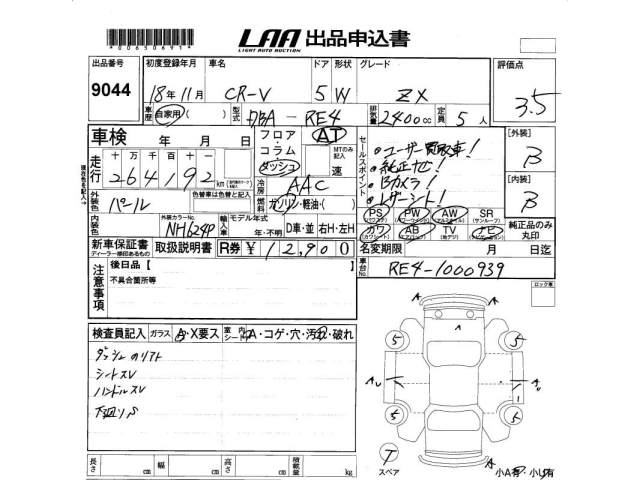 *00650691*
LAA 出品申込書
LIGHT AUTO AUCTION
出品番号 9044
初度登録年月 18年11月
車名 CR-V
ドア 5 形状 W
グレード ZX
評価点 3.5
車歴 自家用( )
型式 DBA-RE4
排気量 2400cc
定員 5人
車検 年 月 日
フロア・コラム・ダッシュ
AT
MTのみ記入
速
セールスポイント
・ユーザー買取車!
・純正ナビ!
・Bカメラ!
・レザーシート!
[外装] B
[内装] B
走行 十万千百十一
264192 km
冷房 AAC
外装色 パール
色替車は色替と記入
燃料 ガソリン・軽油・( )
内装色
外装カラーNo. NH624P
輸入車 モデル年式 年・不明
D車・並 右H・左H
PS PW AW SR
(パワステ) (パワーウィンド) (アルミホイル) (サンルーフ)
カワ AB TV ナビ
(カワシート) (エアバッグ) (地デジ)
純正品のみ丸印
新車保証書 取扱説明書 R券 ¥12,900
ディーラー捺印あるもの
名変期限 月 日迄
車台No. RE4-1000939
注意事項
後日品[
不具合箇所等
ロック車
検査員記入 ガラス A・X要ス 室内シート A・コゲ・穴・汚れ・破れ
ダッシュのリフト
シートスV
ハンドルスV
下廻りS
5 5
5 5
T
スペア
小A有・小U有
長さ cm 幅 cm 高さ cm 積載量 kg